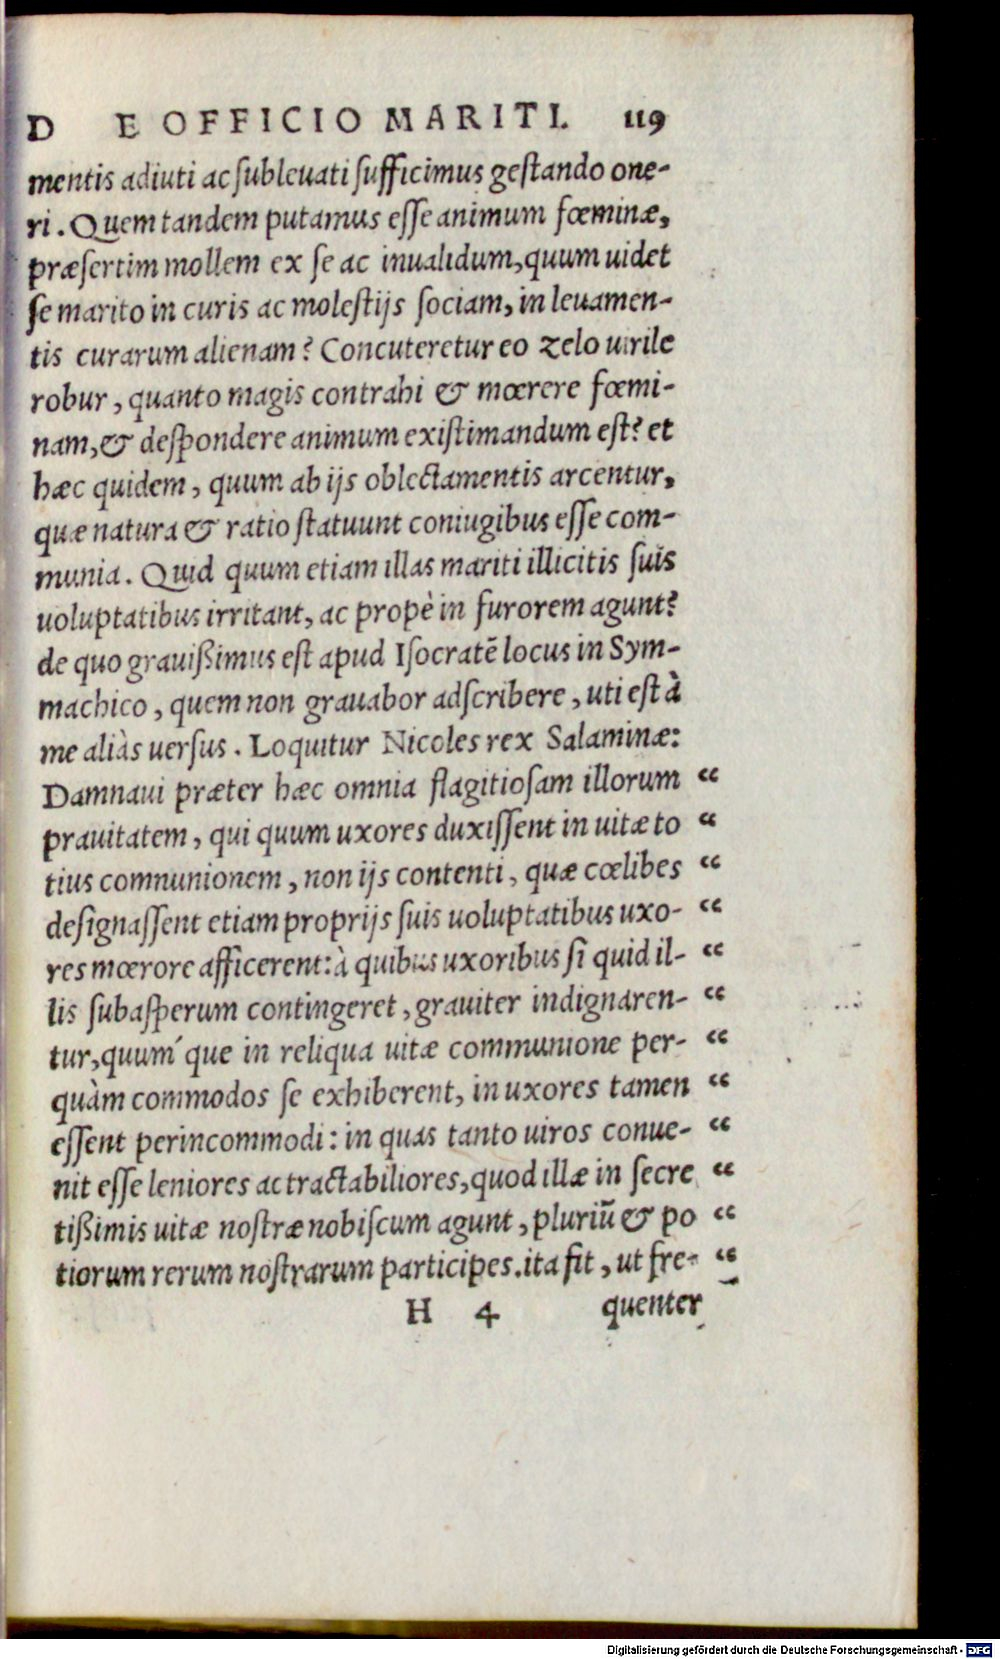 DE OFFICIO MARITI. 119
mentis adiuti ac ſubleuati ſufficimus geſtando one-
ri. Quem tandem putamus eſſe animum fœminæ,
præſertim mollem ex ſe ac inualidum, quum uidet
ſe marito in curis ac moleſtijs ſociam, in leuamen-
tis curarum alienam? Concuteretur eo zelo uirile
robur, quanto magis contrahi & mœrere fœmi-
nam, & deſpondere animum exiſtimandum eſt? et
hæc quidem, quum ab ijs oblectamentis arcentur,
quæ natura & ratio ſtatuunt coniugibus eſſe com-
munia. Quid quum etiam illas mariti illicitis ſuis
uoluptatibus irritant, ac propè in furorem agunt?
de quo grauißimus eſt apud Iſocratē locus in Sym-
machico, quem non grauabor adſcribere, uti eſt à
me aliàs uerſus. Loquitur Nicoles rex Salaminæ:
Damnaui præter hæc omnia flagitioſam illorum “
prauitatem, qui quum uxores duxiſſent in uitæ to “
tius communionem, non ijs contenti, quæ cœlibes “
deſignaſſent etiam proprijs ſuis uoluptatibus uxo- “
res mœrore afficerent: à quibus uxoribus ſi quid il- “
lis ſubaſperum contingeret, grauiter indignaren- “
tur, quum´que in reliqua uitæ communione per- “
quàm commodos ſe exhiberent, in uxores tamen “
eſſent perincommodi: in quas tanto uiros conue- “
nit eſſe leniores ac tractabiliores, quod illæ in ſecre “
tißimis uitæ noſtræ nobiſcum agunt, pluriū & po “
tiorum rerum noſtrarum participes. ita fit, ut fre- “
H 4 quenter
Digitalisierung gefördert durch die Deutsche Forschungsgemeinschaft - DFG